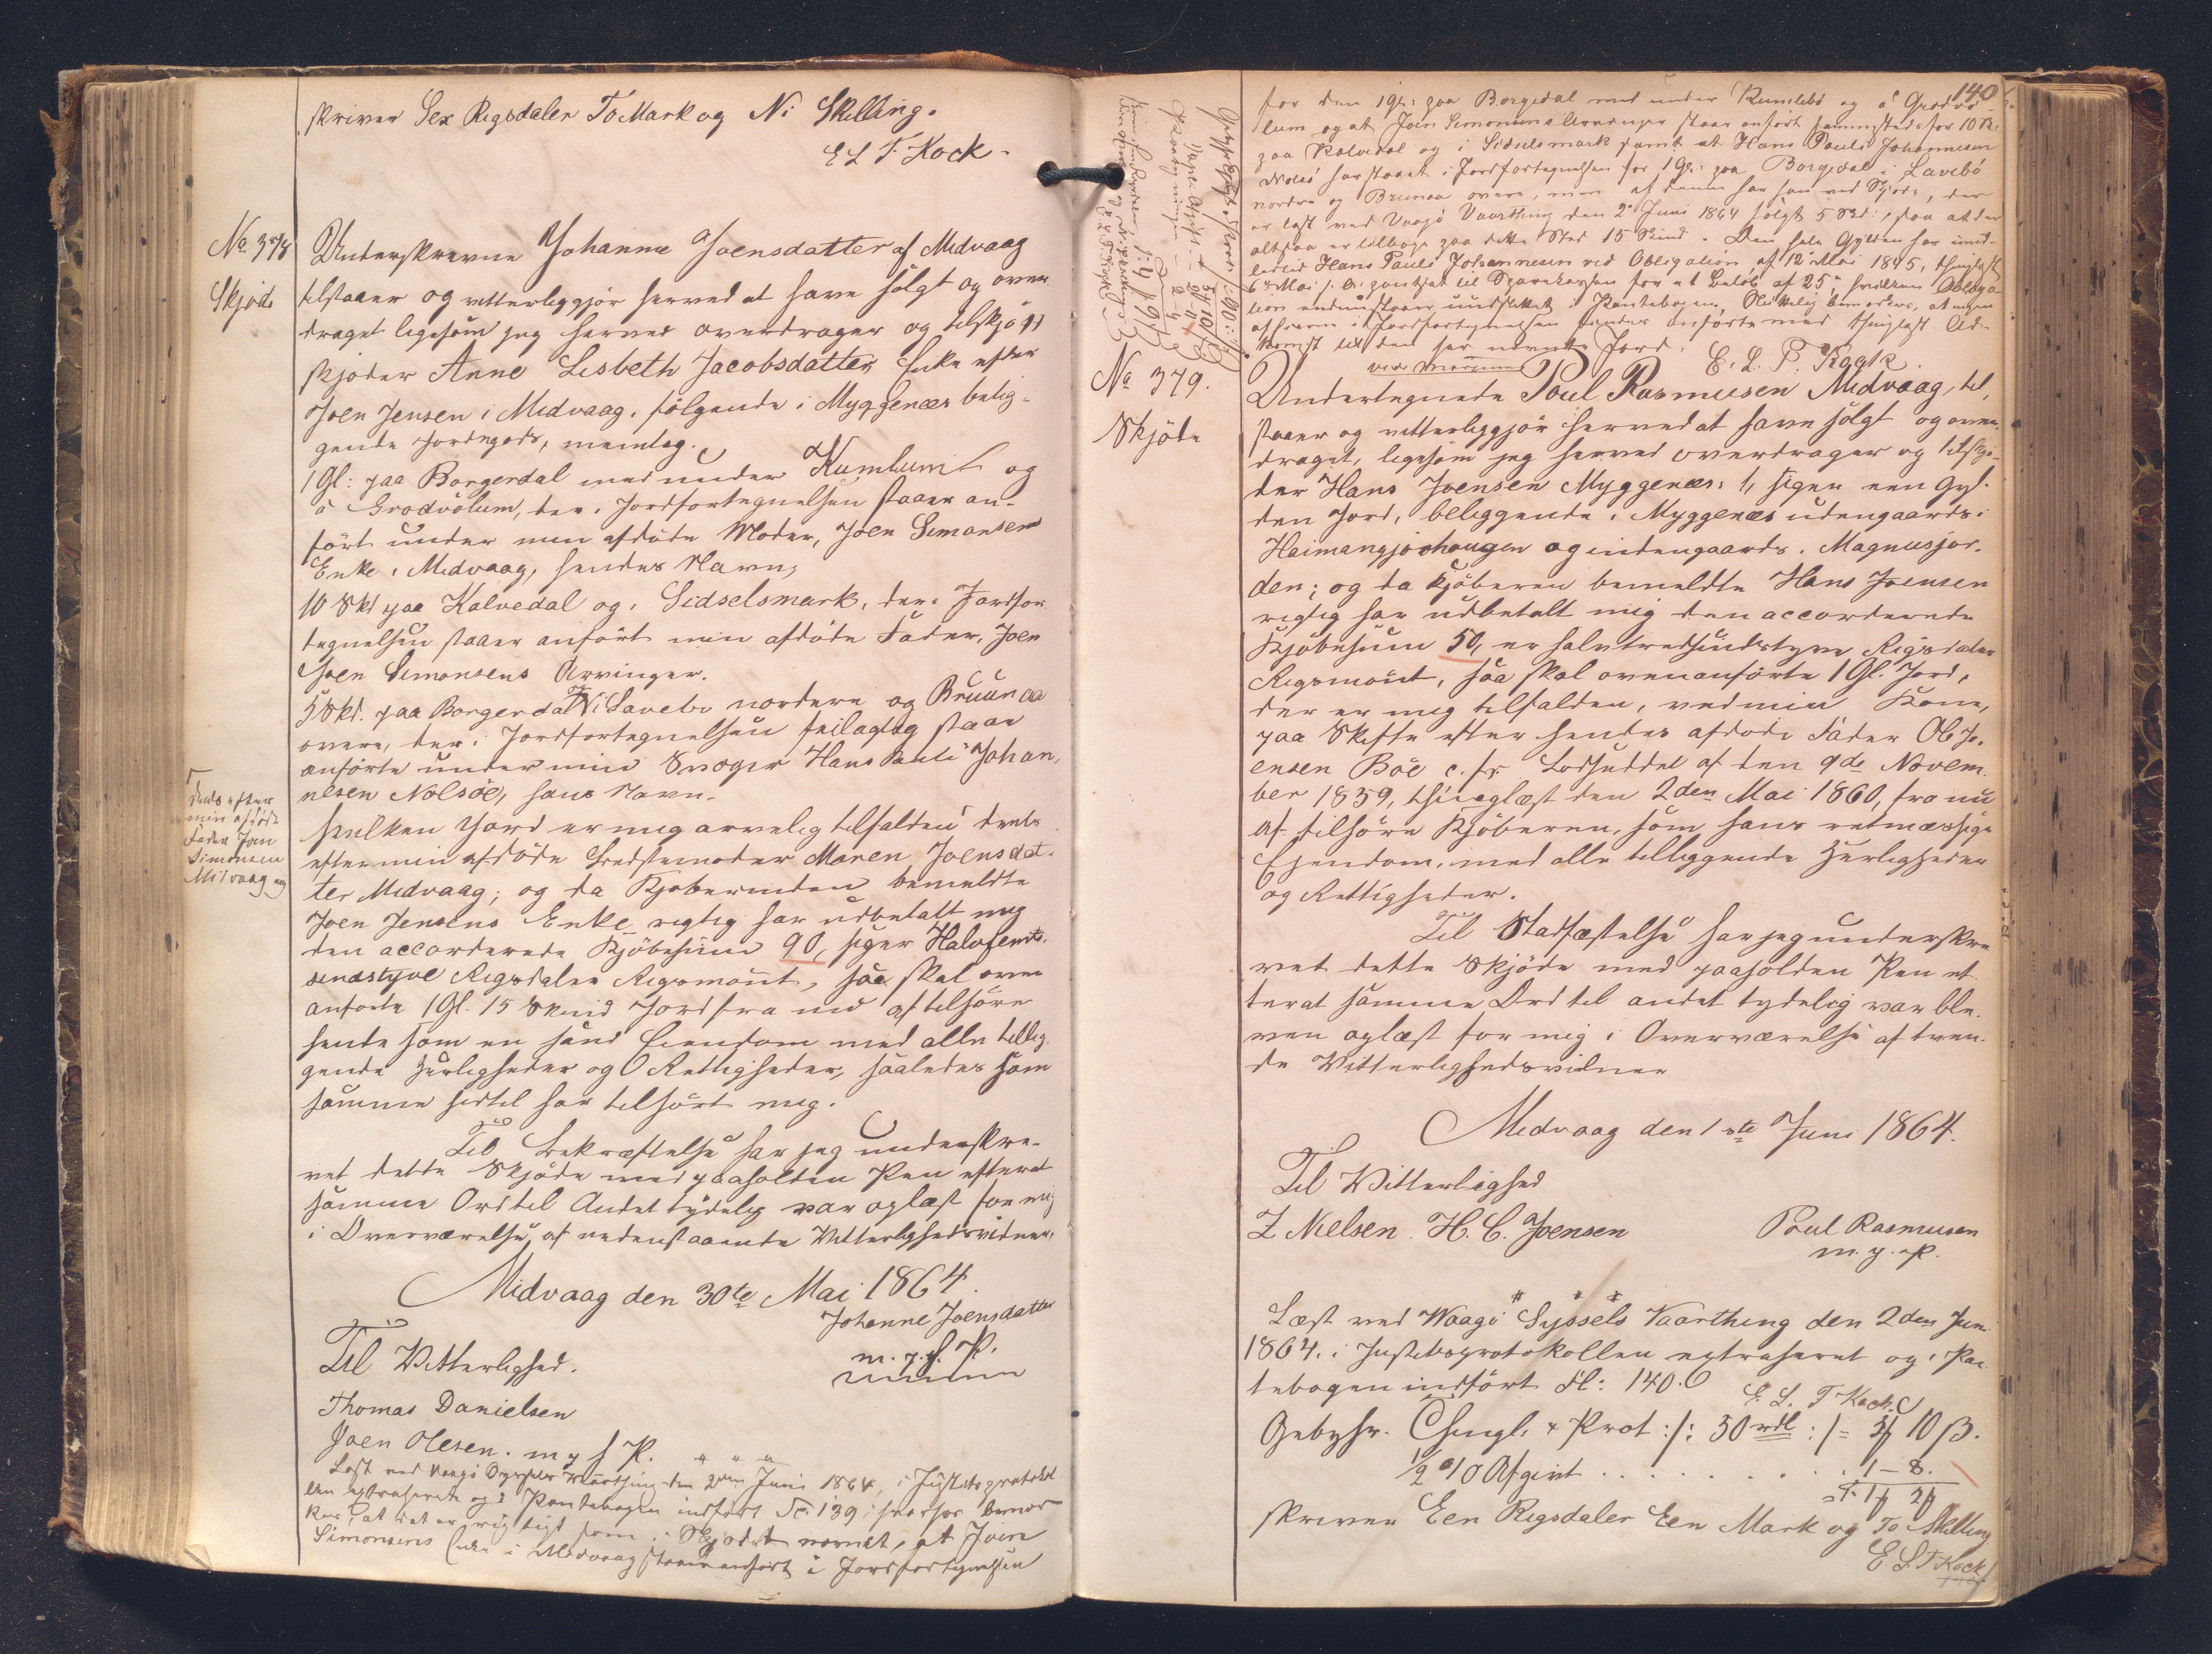 skriver Sex Rigsdaler To Mark og Ni Skilling.
E L T. Kock
No. 378
Skjöde
Underskrevne Johanne Joensdatter af Midvaag
tilstaaer og vitterliggjör herved at have solgt og over
draget ligesom jeg herved overdrager og tilskjö
skjöder Anne Lisbeth Jacobsdatter Enke efter
Joen Jensen i Midvaag, fölgende i Myggenæs belig-
gende Jordegods, nemlig.
1 Gl: paa Borgerdal med under Kumlum og
á Grodvölum, der i Jordfortegnelsen staaer an-
fört under min afdöde Moder, Joen Simonsens
Enke i Midvaag, hendes Navn,
10 Skd paa Kalvedal og i Sidselsmark, der i Jordfor
tegnelsen staaer anfört min afdöde Fader, Joen
Joen Simonsens Arvinger.
5 Skd. paa Borgerdal i Lavebö nordere og Bruunaa
övere, der i Jordfortegnelsen feilagtig staae
anförte under min Svoger Hans Pauli Johan-
nesen Nolsöe, hans Navn.
hvilken Jord er mig arvelig tilfalden deels
deels efter
min afdöde
Fader Joen
Simonsen
Midvaag og
efter min afdöde Bedstemoder Maren Joensdat-
ter Midvaag; og da Kjöberinden bemeldte
Joen Jensens Enke rigtig har udbetalt mig
den accorderede Kjöbesum 90, siger Halvfems-
sindstyve Rigsdaler Rigsmönt, saa skal oven
anförte 1 Gl. 15 Skind Jord fra nu af tilhöre
hende som en sand Eiendom med alle tillig-
gende Herligheder og Rettigheder, saaledes som
samme hidtil har tilhört mig.
Til Bekræftelse har jeg underskre-
vet dette Skjöde med paaholden Pen efterat
samme Ord til Andet tydelig var oplæst for mig
i Overværelse af nedenstaaende Vitterlighedsvidner.
Midvaag den 30te Mai 1864.
Johanne Joensdatter
m. f. P.
Til Vitterlighed.
Thomas Danielsen
Joen Olesen. m f P.
Læst ved Vaagö Syssels Vaarthing den 2den Juni 1864, i Justitsprotokol
len extraheret og i Pantebogen indfört Fol. 139; hvorhos bemær
kes, at det er rigtigt som i Skjödet nævnt, at Joen
Simonsens Enke i Midvaag staaer anfört i Jordfortegnelsen
140
for den 1 Gl: paa Borgedal med under Kumlebö og á Grodvö-
lum og at Joen Simonsens Arvinger staae anfört sammesteds for 10 Sk.
paa Kalvedal og i Sidselsmark samt at Hans Pauli Johannesen
Nolsö har staaet i Jordfortegnelsen for 1 Gl: paa Borgedal i Lavebö
nordre og Brunaa övere, men af denne har han ved Skjöde, der
er læst ved Vaagö Vaarthing den 2 Juni 1864 solgt 5 Skd:, saa at der
altsaa er tilbage paa dette Sted 15 Skind. Den hele Gylden har imid-
lertid Hans Pauli Johannesen ved Obligation af 12 Mai 1845, thinglæst
6 Mai s. A. pantsat til Sparekassen for et Beløb af 25, hvilken Obliga
tion endnu staaer uudslettet i Pantebogen. Slutteligt bemærkes, at ingen
af Siderne i Jordfortegnelsen findes anförte med thinglæst Ad-
komst til den her nævnte Jord.
E. L. T. Kock.
No 379.
Skjöde
Undertegnede Poul Rasmussen Midvaag, til
staaer og vitterliggjör herved at have solgt og over
draget, ligesom jeg herved overdrager og tilskjö
der Hans Joensen Myggenæs: 1, siger een Gyl-
den Jord, beliggende i Myggenæs udengaards i
Haimangjoohaugen og indengaards i Magnusjor-
den; og da Kjöberen bemeldte Hans Joensen
rigtig har udbetalt mig den accorderede
Kjöbesum 50, er halvtredsindstyve Rigsdaler
Rigsmönt, saa skal ovenanförte 1 Gl. Jord,
der er mig tilfalden, ved min Kone,
paa Skifte efter hendes afdöde Fader Ole Jo-
ensen Böe c. fr. Lodseddel af den 9de Novem-
ber 1859, thinglæst den 2den Mai 1860, fra nu
af tilhöre Kjöberen, som hans retmæssige
Ejendom, med alle tilliggende Herligheder
og Rettigheder.
Til Stadfæstelse har jeg underskre
vet dette Skjöde med paaholden Pen ef
terat samme Ord til andet tydelig var ble-
ven oplæst for mig i Overværelse af tven-
de Vitterlighedsvidner
Midvaag den 1ste Juni 1864.
Til Vitterlighed
Z Nielsen. H. C. Joensen
Poul Rasmussen
m. f. P.
Læst ved Waagö Syssels Vaarthing den 2den Juni
1864. i Justitsprotokollen extraheret og i Pan
tebogen indfört Fl: 140.
E. L. T Kock
Gebyhr. Thingl. & Prot :/: 50 rdl :/= 3# 10 ß.
½ % Afgivt . . . . . . 1 - 8.
skriver Een Rigsdaler Een Mark og To Skilling
E. L. T Kock